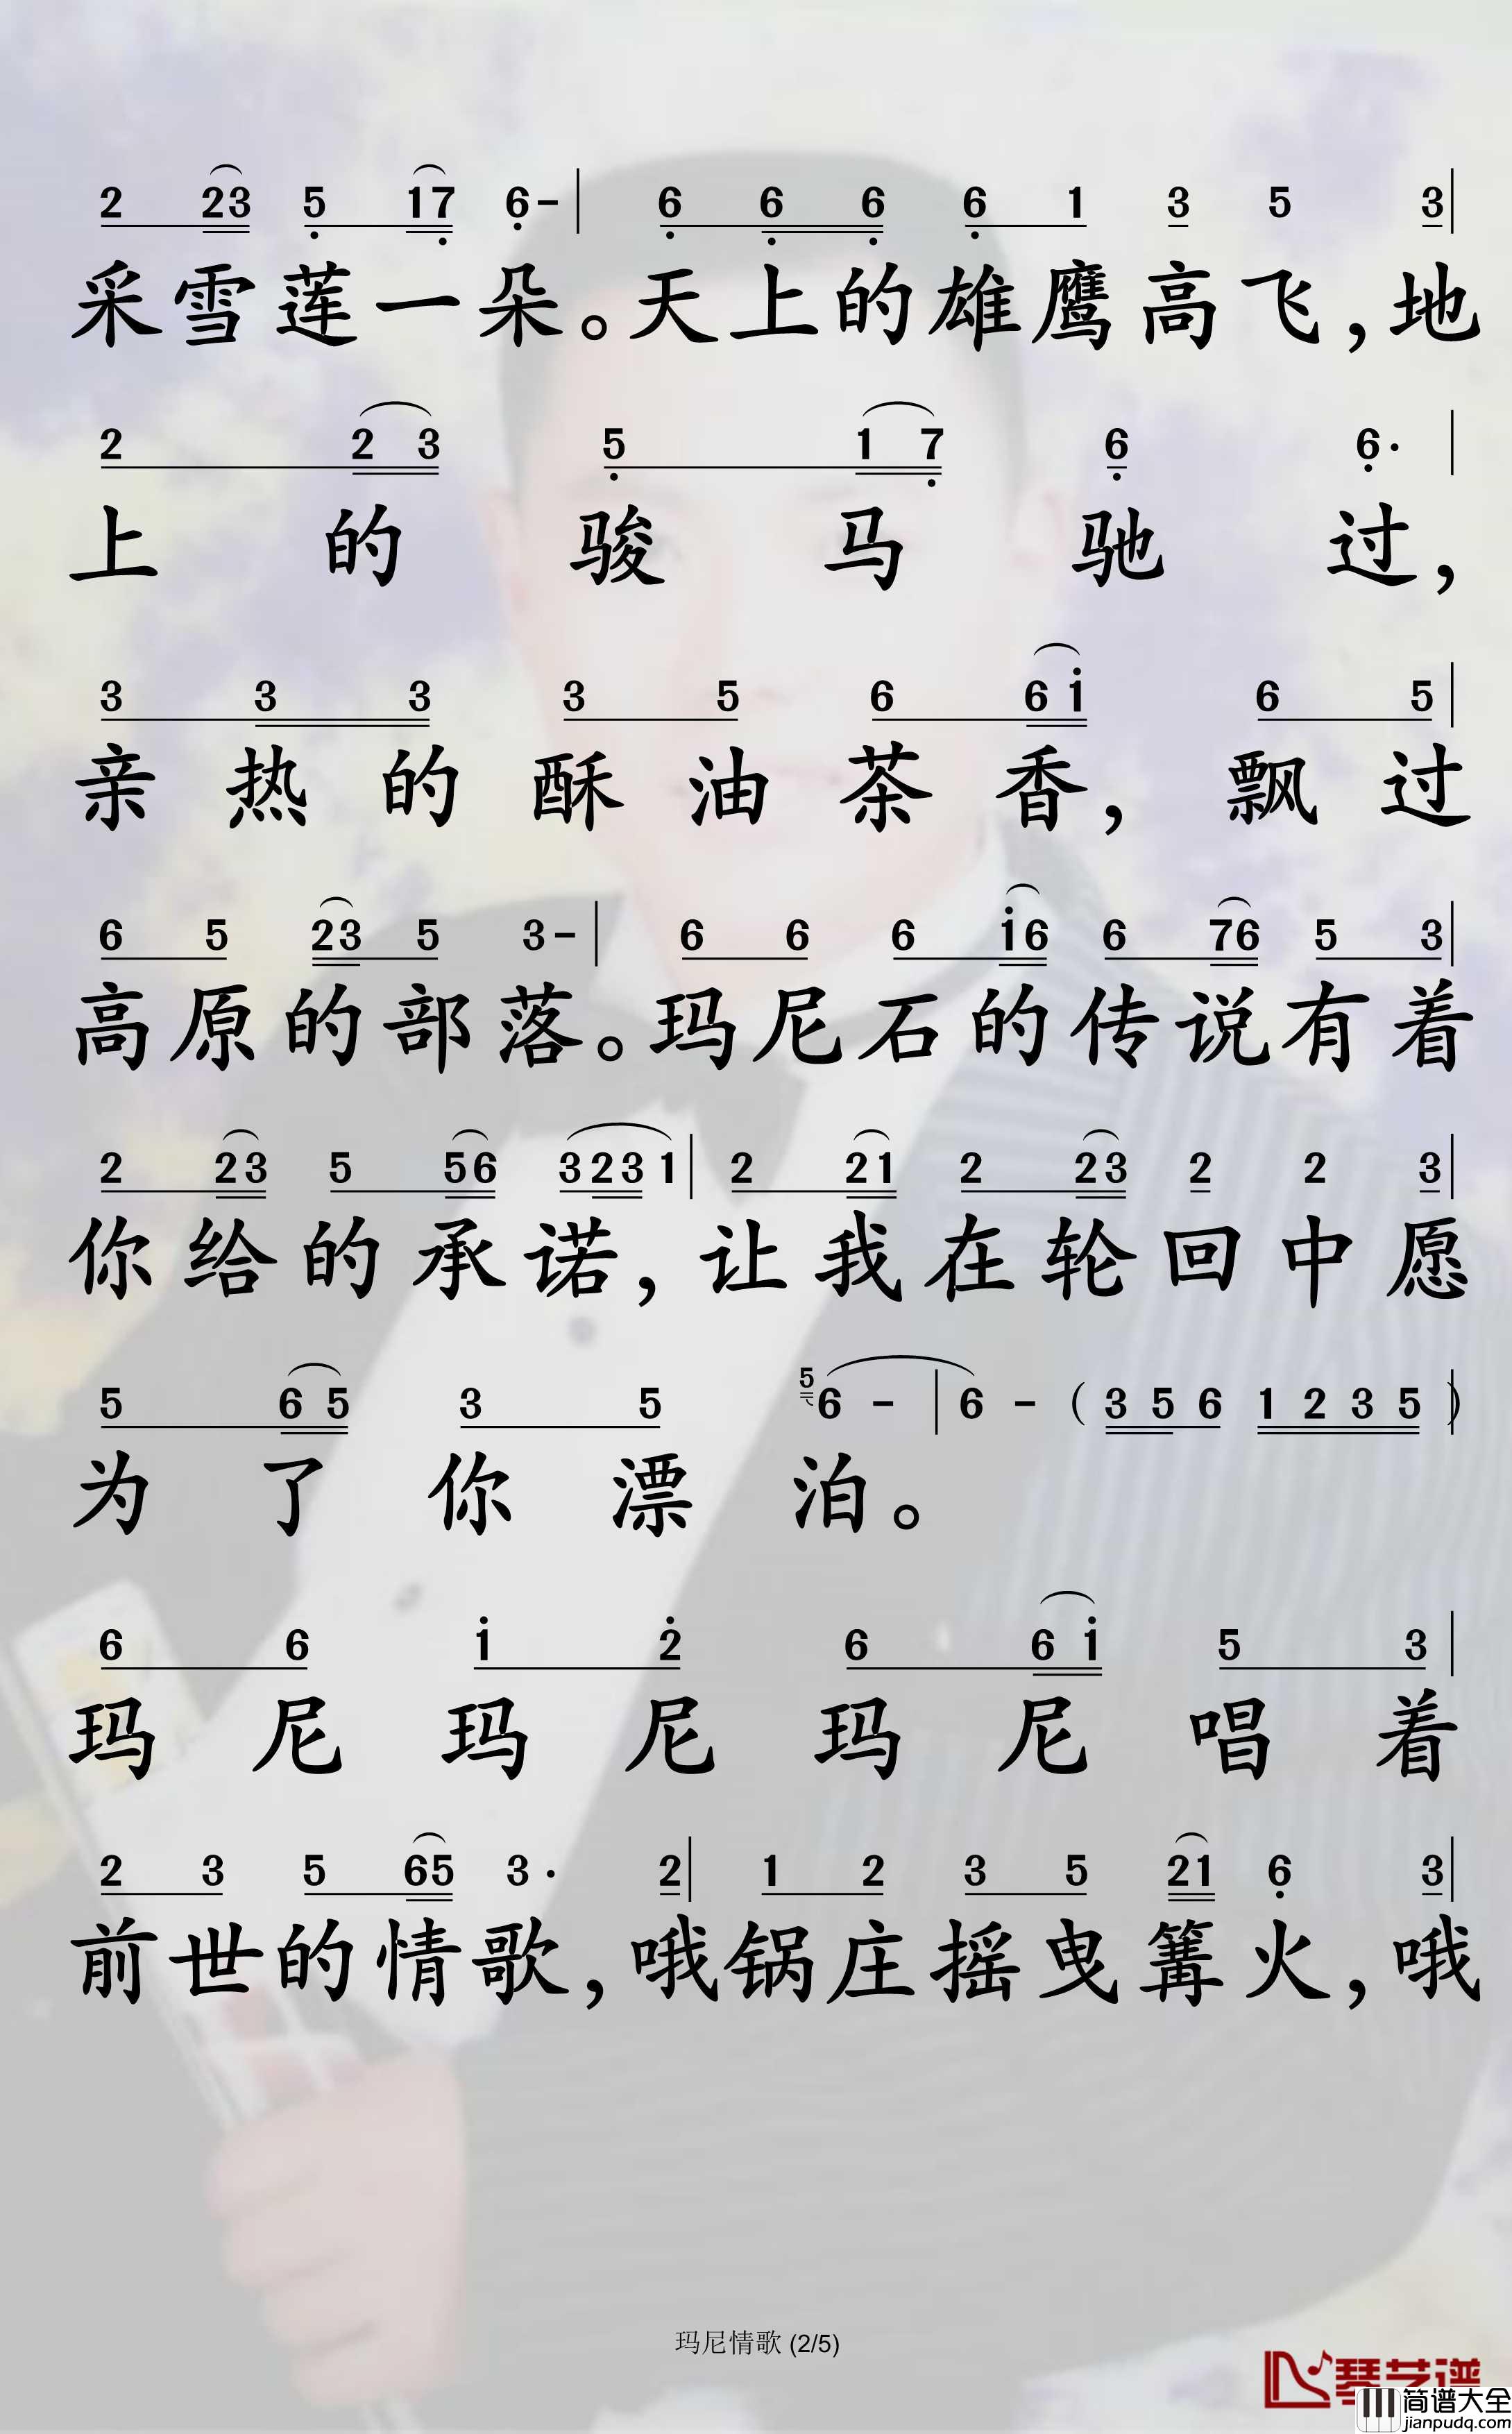 2 23 5 17 6- | 6 6 6 6 1 3 5 3 |
采雪莲一朵。天上的雄鹰高飞,地
2 2 3 5 1 7 6 6· |
上的骏马驰过,
3 3 3 3 5 6 6 i 6 5 |
亲热的酥油茶香,飘过
6 5 23 5 3- | 6 6 6 i6 6 76 5 3 |
高原的部落。玛尼石的传说有着
2 23 5 56 3231 | 2 21 2 23 2 2 3 |
你给的承诺,让我在轮回中愿
5 6 5 3 5 5 6 - | 6 - ( 3 5 6 1 2 3 5 ) |
为了你漂泊。
6 6 i 2 6 6 i 5 3 |
玛尼玛尼玛尼唱着
2 3 5 65 3· 2 | 1 2 3 5 21 6 3 |
前世的情歌,哦锅庄摇曳篝火,哦
玛尼情歌 (2/5)
琴艺谱
简谱大全
jianpudq.com